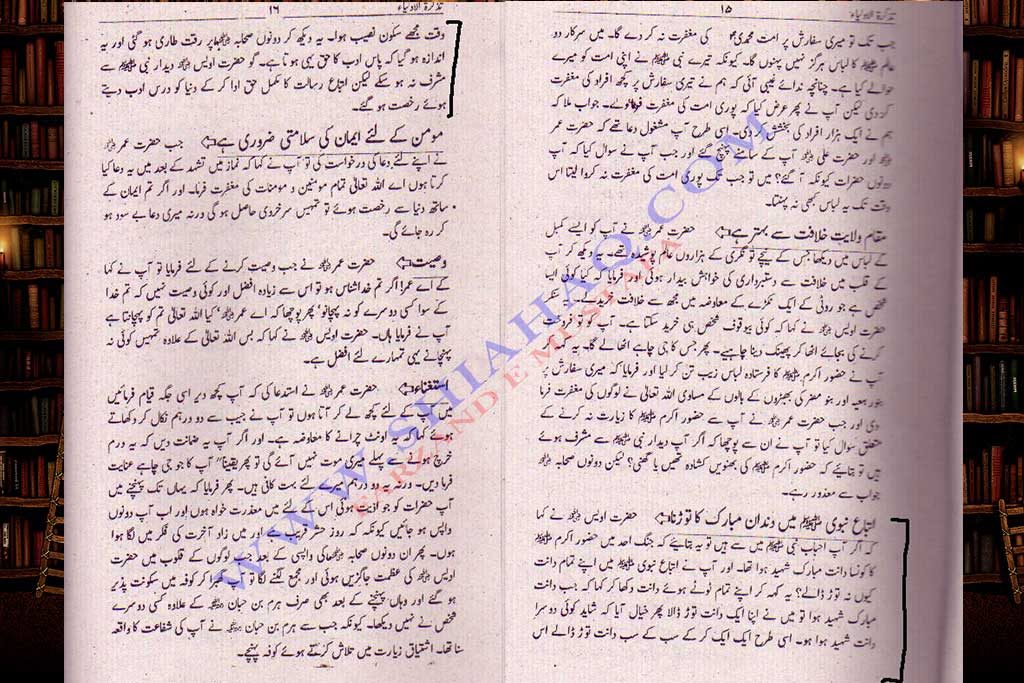 تذکرۃ الاولیاء
۱۵
جب تک تو میری سفارش پر امت محمدی ﷺ کی مغفرت نہ کر دے گا۔ میں سرکار دو
عالم ﷺ کا لباس ہرگز نہیں پہنوں گا۔ کیونکہ تیرے نبی ﷺ نے اپنی امت کو میرے
حوالے کیا ہے۔ چنانچہ ندائے غیبی آئی کہ ہم نے تیری سفارش پر کچھ افراد کی مغفرت
کر دی لیکن آپ نے پھر عرض کیا کہ پوری امت کی مغفرت فرماوے۔ جواب ملا کہ
ہم نے ایک ہزار افراد کی بخشش کر دی۔ اسی طرح آپ مشغول دعا تھے کہ حضرت عمر
اور حضرت علی آپ کے سامنے پہنچ گئے اور جب آپ نے سوال کیا کہ آپ
دونوں حضرات کیوں آ گئے؟ میں تو جب تک پوری امت کی مغفرت نہ کروا لیتا اس
وقت تک یہ لباس کبھی نہ پہنتا۔
مقام ولایت خلافت سے بہتر ہے حضرت عمر نے آپ کو ایسے کمبل
کے لباس میں دیکھا جس کے نیچے تو نگری کے ہزاروں عالم پوشیدہ تھے۔ یہ دیکھ کر آپ
کے قلب میں خلافت سے دستبرداری کی خواہش بیدار ہوئی اور فرمایا کہ کیا کوئی ایسا
شخص ہے جو روٹی کے ایک ٹکڑے کے معاوضہ میں مجھ سے خلافت خریدلے۔ یہ سنکر
حضرت اویس نے کہا کہ کوئی بیوقوف شخص ہی خرید سکتا ہے۔ آپ کو تو فروخت
کرنے کی بجائے اٹھا کر پھینک دینا چاہیے۔ پھر جس کا جی چاہے اٹھا لے گا۔ یہ کہہ کر
آپ نے حضور اکرم ﷺ کا فرستادہ لباس زیب تن کر لیا اور فرمایا کہ میری سفارش پر
بنو ربیعہ اور بنو مضر کی بھیڑوں کے بالوں کے مساوی اللہ تعالیٰ نے لوگوں کی مغفرت فرما
دی اور جب حضرت عمر نے آپ سے حضور اکرم ﷺ کا زیارت نہ کرنے کے
متعلق سوال کیا تو آپ نے ان سے پوچھا کہ اگر آپ دیدار نبی ﷺ سے مشرف ہوئے
ہیں تو بتائیے کہ حضور اکرم ﷺ کی بھنویں کشادہ تھیں یا گھنی؟ لیکن دونوں صحابہ
جواب سے معذور رہے۔
اتباع نبوی ﷺ میں دندان مبارک کا توڑنا حضرت اویس نے کہا
کہ اگر آپ احباب نبی ﷺ میں سے ہیں تو یہ بتائیے کہ جنگ احد میں حضور اکرم ﷺ
کا کونسا دانت مبارک شہید ہوا تھا۔ اور آپ نے اتباع نبوی ﷺ میں اپنے تمام دانت
کیوں نہ توڑ ڈالے؟ یہ کہہ کر اپنے تمام ٹوٹے ہوئے دانت دکھا کر کہا کہ جب دانت
مبارک شہید ہوا تو میں نے اپنا ایک دانت توڑ ڈالا پھر خیال آیا کہ شاید کوئی دوسرا
دانت شہید ہوا ہو۔ اسی طرح ایک ایک کر کے سب کے سب دانت توڑ ڈالے اس
تذکرۃ الاولیاء
۱۶
وقت مجھے سکون نصیب ہوا۔ یہ دیکھ کر دونوں صحابہ پر رقت طاری ہو گئی اور یہ
اندازہ ہو گیا کہ پاس ادب کا حق یہی ہوتا ہے۔ گو حضرت اویس دیدار نبی ﷺ سے
مشرف نہ ہو سکے لیکن اتباع رسالت کا مکمل حق ادا کر کے دنیا کو درس ادب دیتے
ہوئے رخصت ہو گئے۔
مومن کے لئے ایمان کی سلامتی ضروری ہے جب حضرت عمر
نے اپنے لئے دعا کی درخواست کی تو آپ نے کہا کہ نماز میں تشہد کے بعد میں یہ دعا کیا
کرتا ہوں اے اللہ تعالیٰ تمام مومنین و مومنات کی مغفرت فرما۔ اور اگر تم ایمان کے
ساتھ دنیا سے رخصت ہوئے تو تمہیں سرخروئی حاصل ہو گی ورنہ میری دعا بے سود ہو
کر رہ جائے گی۔
وصیت حضرت عمر نے جب وصیت کرنے کے لئے فرمایا تو آپ نے کہا
کہ اے عمر! اگر تم خدا شناس ہو تو اس سے زیادہ افضل اور کوئی وصیت نہیں کہ تم خدا
کے سوا کسی دوسرے کو نہ پہچانو' پھر پوچھا کہ اے عمر' کیا اللہ تعالیٰ تم کو پہچانتا ہے
آپ نے فرمایا ہاں۔ حضرت اویس نے کہا کہ بس اللہ تعالیٰ کے علاوہ تمہیں کوئی نہ
پہچانے یہی تمہارے لئے افضل ہے۔
استغناء حضرت عمر نے استدعا کی کہ آپ کچھ دیر اسی جگہ قیام فرمائیں
میں آپ کے لئے کچھ لے کر آتا ہوں تو آپ نے جیب سے دو درہم نکال کر دکھاتے
ہوئے کہا کہ یہ اونٹ چرانے کا معاوضہ ہے۔ اور اگر آپ یہ ضمانت دیں کہ یہ درہم
خرچ ہونے سے پہلے میری موت نہیں آئے گی تو پھر یقیناً آپ کا جو جی چاہے عنایت
فرما دیں۔ ورنہ یہ دو درہم میرے لئے بہت کافی ہیں۔ پھر فرمایا کہ یہاں تک پہنچنے میں
آپ حضرات کو جو اذیت ہوئی اس کے لئے میں معذرت خواہ ہوں اور اب آپ دونوں
واپس ہو جائیں کیونکہ کہ روز حشر قریب ہے اور میں زاد آخرت کی فکر میں لگا ہوا
ہوں۔ پھر ان دونوں صحابہ کی واپسی کے بعد جب لوگوں کے قلوب میں حضرت
اویس کی عظمت جاگزیں ہوئی اور مجمع لگنے لگا تو آپ گھبرا کر کوفہ میں سکونت پذیر
ہو گئے اور وہاں پہنچنے کے بعد بھی صرف ہرم بن حبان کے علاوہ کسی دوسرے
شخص نے نہیں دیکھا۔ کیونکہ جب سے ہرم بن حبان نے آپ کی شفاعت کا واقعہ
سنا تھا۔ اشتیاق زیارت میں تلاش کرتے ہوئے کوفہ پہنچے۔
WWW.SHIAHAQ.COM
FARZAND E MUSTAFA